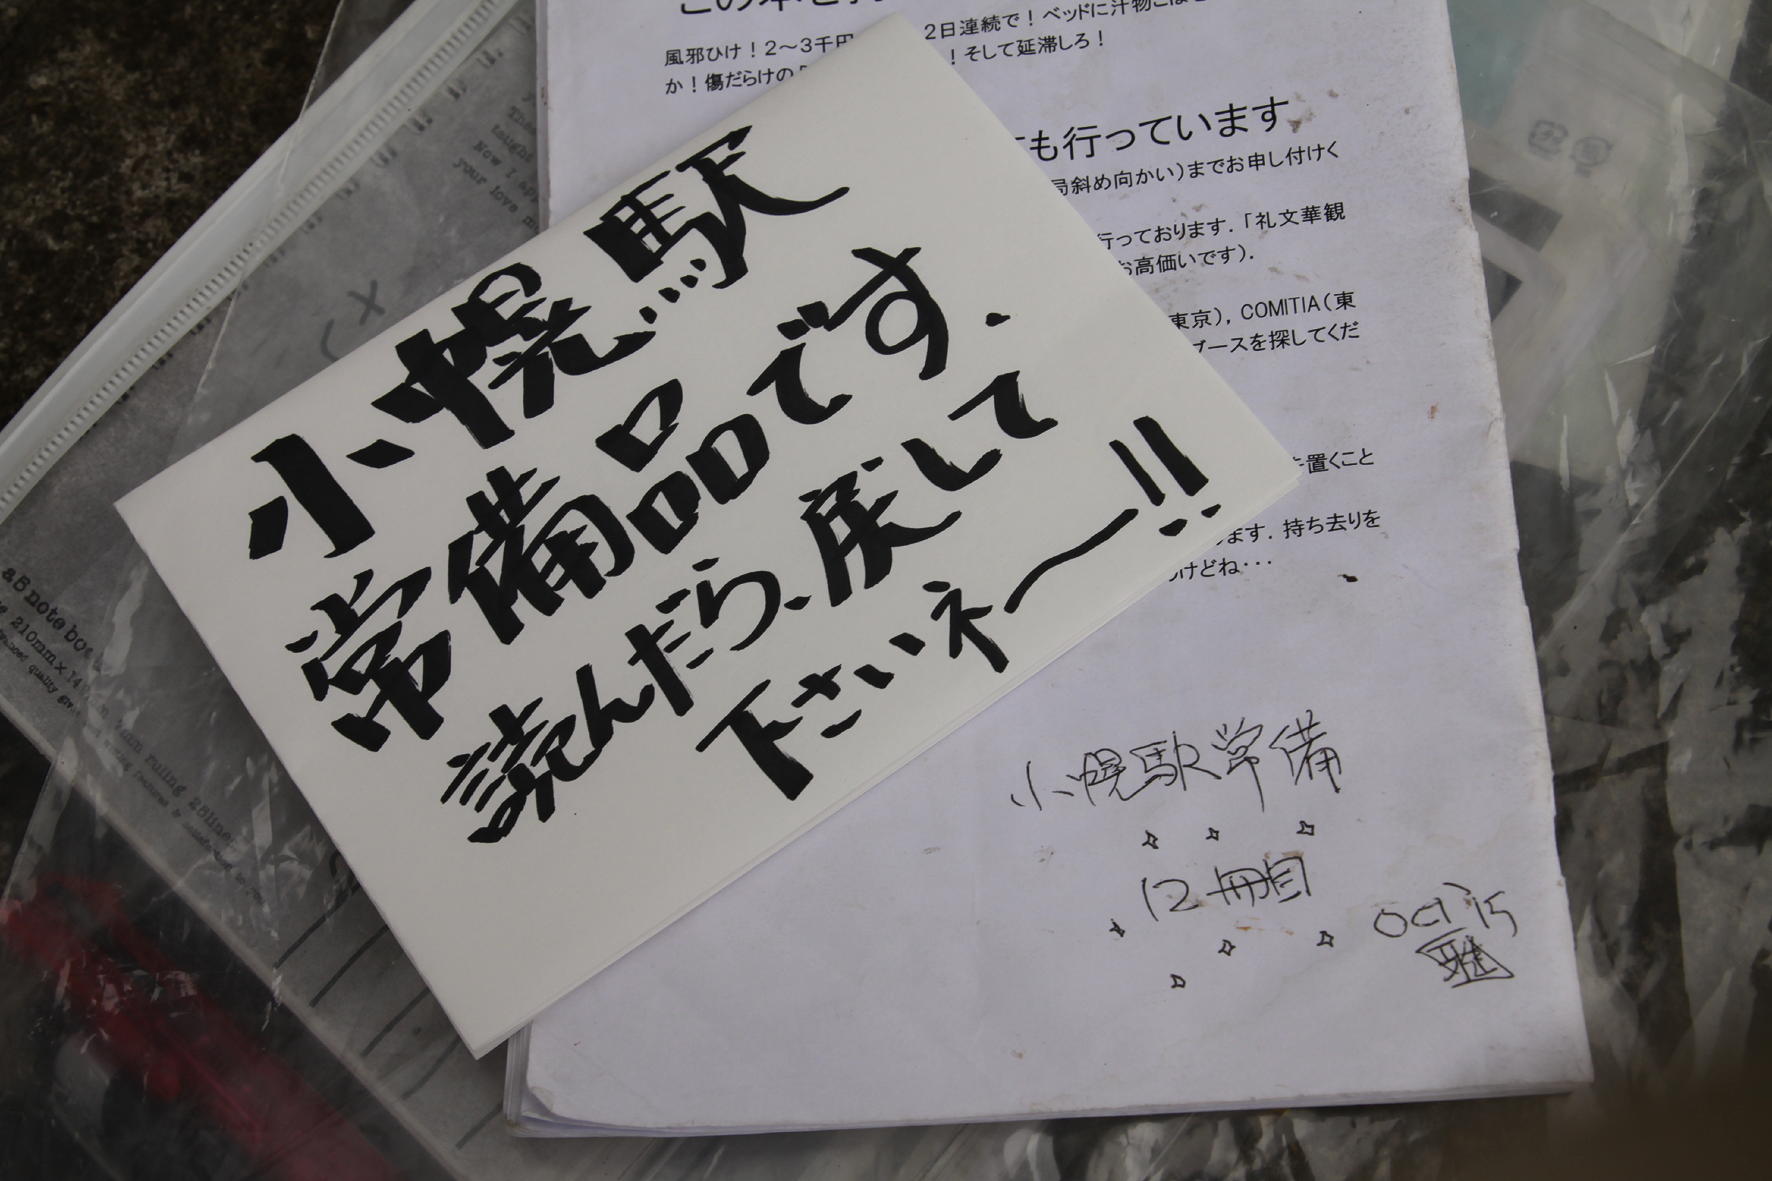 小幌駅
常備品です.
読んだら、戻して
下さいネ〜!!
風邪ひけ！2～3千円
2日連続で！ベッドに汁物こぼせ
か！傷だらけの
！そして延滞しろ！
も行っています
局斜め向かい)までお申し付けく
行っております.「礼文華観
お高価いです).
東京), COMITIA(東
ブースを探してくだ
を置くこと
ます. 持ち去りを
けどね・・・
小幌駅常備
12冊目
OCT '15
aB note book
210mm×14
ruling 28lines
your love